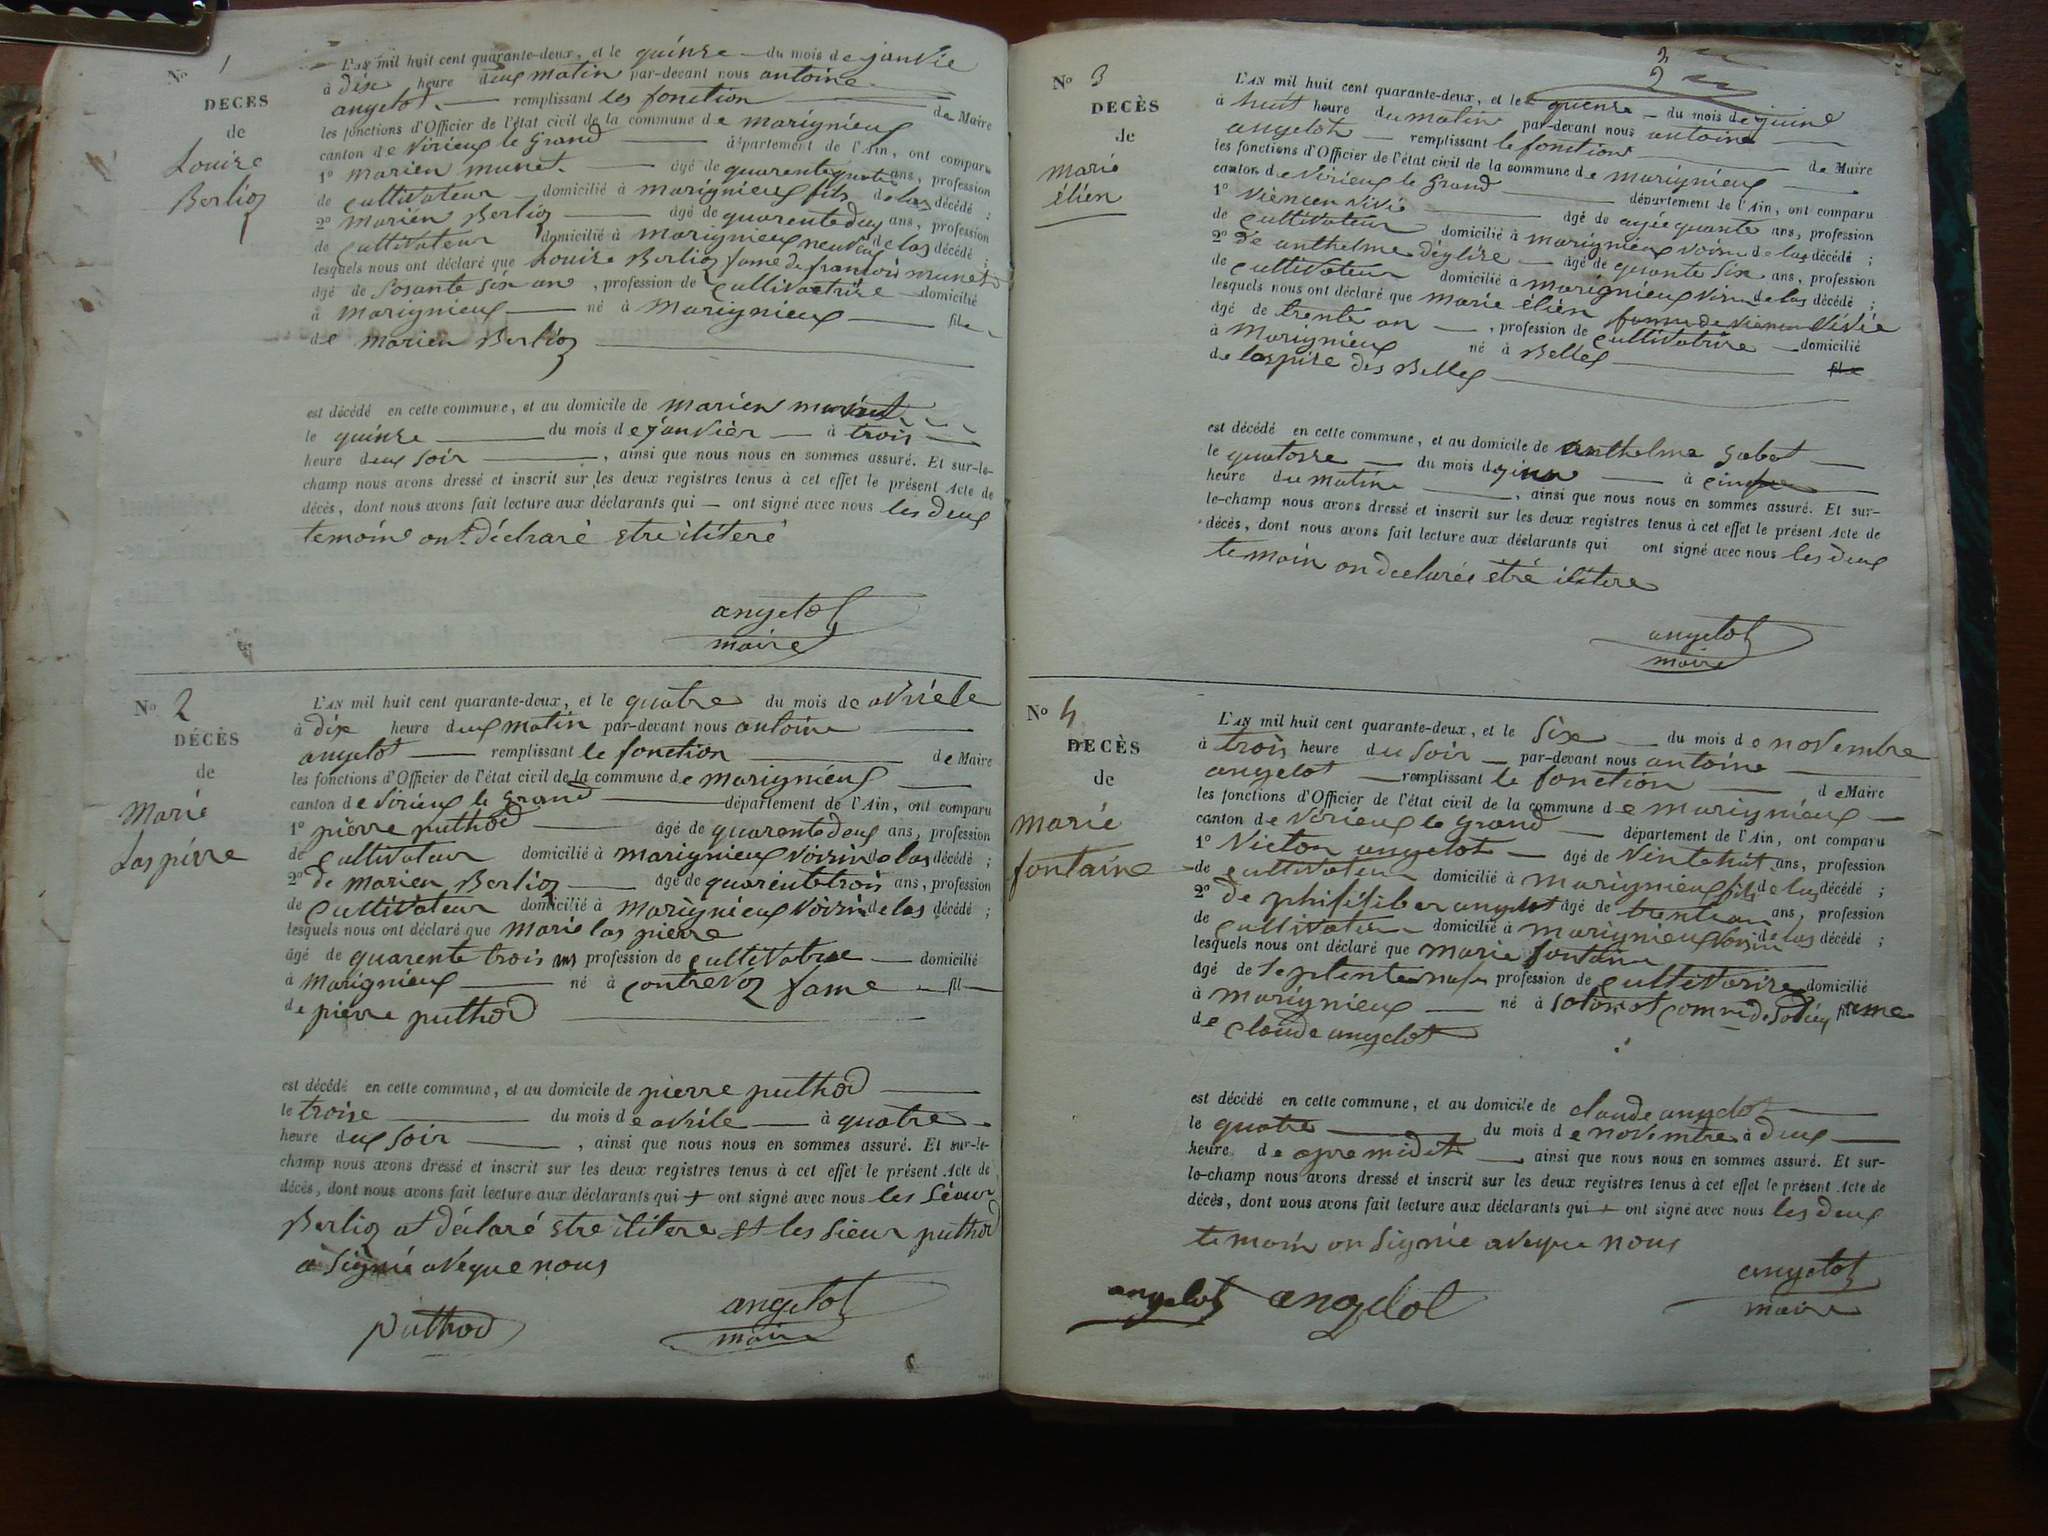 No 1
DECES
de
Louise
Berlioz
L'AN mil huit cent quarante-deux, et le quinse du mois de janvie
à dix heure deux matin par-devant nous antoine
angelot remplissant les fonction de Maire
les fonctions d'Officier de l'état civil de la commune de marignieux
canton de virieux le grand département de l'Ain, ont comparu
1º marien munet. âgé de quarente quatre ans, profession
de cultivateur domicilié à marignieux fils de las décédé ;
2º marien Berlioz âgé de quarente deux ans, profession
de cultivateur domicilié à marignieux neuveux de las décédé ;
lesquels nous ont déclaré que Louise Berlioz fame de francois munet
âgé de sosante six an , profession de cultivactrise domicilié
à marignieux né à marignieux fil
de marien Berlioz
est décédé en cette commune, et au domicile de marien munet
le quinse du mois de janvièr à trois
heure deux soir , ainsi que nous nous en sommes assuré. Et sur-le-
champ nous avons dressé et inscrit sur les deux registres tenus à cet effet le présent Acte de
décès, dont nous avons fait lecture aux déclarants qui ont signé avec nous les deux
temoins ont déclaré etre ilitere
angelot
maire
No 2
DÉCÈS
de
Marie
Laspierre
L'AN mil huit cent quarante-deux, et le quatre du mois de avriele
à dix heure deux matin par-devant nous antoine
angelot remplissant le fonction de Maire
les fonctions d'Officier de l'état civil de la commune de marignieux
canton de virieux le grand département de l'Ain, ont comparu
1º pierre puthod âgé de quarente deux ans, profession
de cultivateur domicilié à marignieux voisin de las décédé ;
2º de marien Berlioz âgé de quarente trois ans, profession
de cultivateur domicilié à marignieux voisin de las décédé ;
lesquels nous ont déclaré que marie las pierre
âgé de quarente trois ans profession de cultivatrise domicilié
à marignieux né à contrevoz fame fil
de pierre puthod
est décédé en cette commune, et au domicile de pierre puthod
le troise du mois de avrile à quatre
heure deux soir , ainsi que nous nous en sommes assuré. Et sur-le-
champ nous avons dressé et inscrit sur les deux registres tenus à cet effet le présent Acte de
décès, dont nous avons fait lecture aux déclarants qui + ont signé avec nous les sieur
Berlioz at déclaré etre ilitere et les sieur puthod
a signié aveque nous
puthod
angelot
maire
3
2
No 3
DECÈS
de
marie
élien
L'AN mil huit cent quarante-deux, et le quense du mois de juine
à huit heure du matin par-devant nous antoine
angelot remplissant le fonction de Maire
les fonctions d'Officier de l'état civil de la commune de marignieux
canton de virieux le grand département de l'Ain, ont comparu
1º viencen vivié âgé de ans, profession
de cultivateur domicilié à marignieux voisin de las décédé ;
2º de anthelme déglise âgé de quante six ans, profession
de cultivateur domicilié à marignieux de las décédé ;
lesquels nous ont déclaré que marie élien femme de viencen vivié
âgé de trente an , profession de cultivatrise domicilié
à marignieux né à Belley fil
de lospise dès Belley
est décédé en cette commune, et au domicile de anthelme gobet
le quatorse du mois de juin à cinque
heure du matine , ainsi que nous nous en sommes assuré. Et sur-
le-champ nous avons dressé et inscrit sur les deux registres tenus à cet effet le présent Acte de
décès, dont nous avons fait lecture aux déclarants qui ont signé avec nous les deux
temoin on declarée etré ilitere
angelot
maire
No 4
DECÈS
de
marie
fontaine
L'AN mil huit cent quarante-deux, et le six du mois de novembre
à trois heure du soir par-devant nous antoine
angelot remplissant le fonction de Maire
les fonctions d'Officier de l'état civil de la commune de marignieux
canton de virieux le grand département de l'Ain, ont comparu
1º Victor angelot âgé de vintehuit ans, profession
de cultivateur domicilié à marignieux fils de las décédé ;
2º de angelot âgé de trente an ans, profession
de cultivateur domicilié à marignieux voisin de las décédé ;
lesquels nous ont déclaré que marie fontaine
âgé de profession de cultivatrise domicilié
à marignieux né à fame
de claude angelot
est décédé en cette commune, et au domicile de claude angelot
le quatre du mois de novembre à deux
heure de apremidit ainsi que nous nous en sommes assuré. Et sur-
le-champ nous avons dressé et inscrit sur les deux registres tenus à cet effet le présent Acte de
décès, dont nous avons fait lecture aux déclarants qui + ont signé avec nous les deux
temoin on signié aveque nous
angelot angelot
angelot
maire